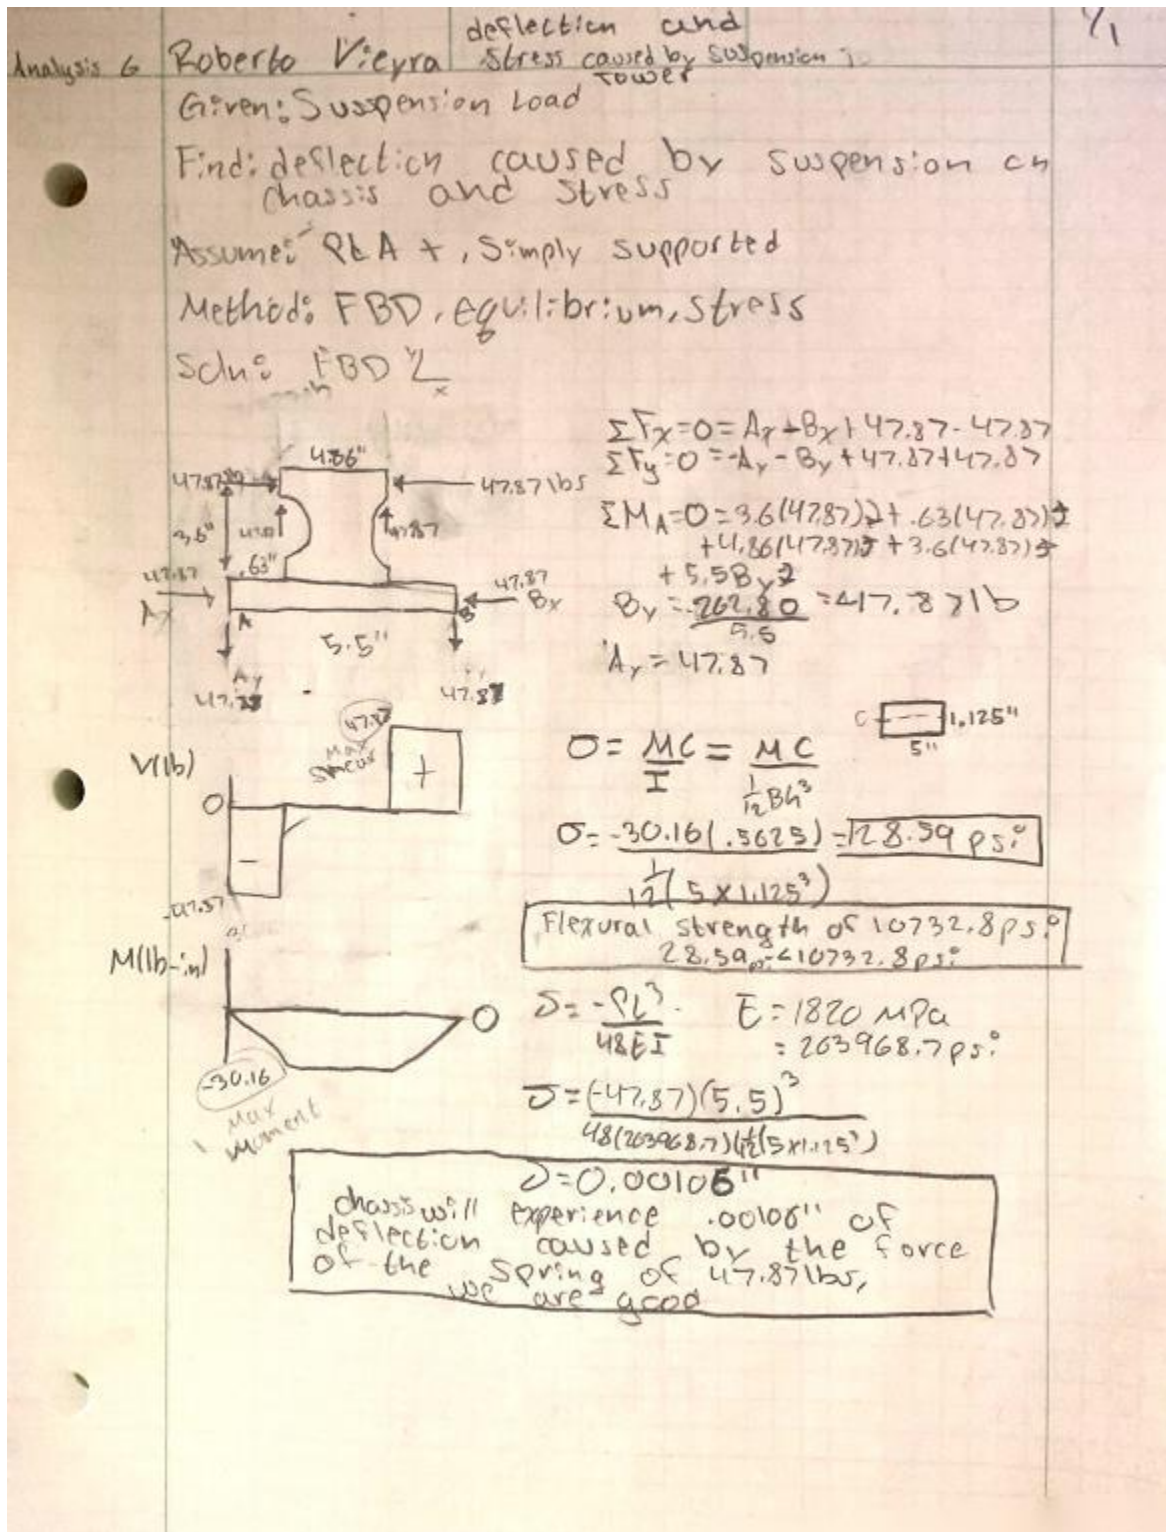 Analysis 6
Roberto Vieyra
deflection and
stress caused by suspension
Tower
1/1
Given: Suspension Load
Find: deflection caused by suspension on
chassis and stress
Assume: Pt A +, Simply supported
Method: FBD, equilibrium, stress
Soln: FBD
y
x
4.86"
47.87
47.87 lbs
3.6"
47.87
.63"
47.87
Ax
A
5.5"
B
47.87
Bx
Ay
47.87
47.87
ΣFx=0=Ax-Bx+47.87-47.87
ΣFy=0=-Ay-By+47.87+47.87
ΣMA=0=3.6(47.87)+.63(47.87)
+4.86(47.87)+3.6(47.87)
+5.5By
By=262.80/5.5=47.87lb
Ay=47.87
V(lb)
47.87
Max
Shear
+
0
-
-47.87
C
1.125"
5"
σ=MC/I=MC/(1/12 Bh³)
σ=-30.16(.5625)/(1/12(5x1.125³)=28.59 psi
Flexural strength of 10732.8psi
28.59psi<10732.8psi
M(lb-in)
0
-30.16
Max
Moment
δ=-PL³/48EI
E=1820 MPa
=263968.7psi
δ=(-47.87)(5.5)³/48(263968.7)(1/12(5x1.125³)
δ=0.00106"
chassis will experience .00106" of
deflection caused by the force
of the spring of 47.87lbs,
we are good